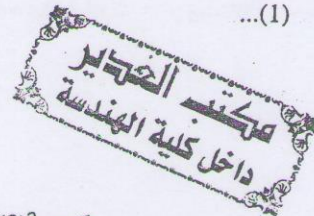 ...(1)
مكتب الغدير
داخل كلية الهندسة